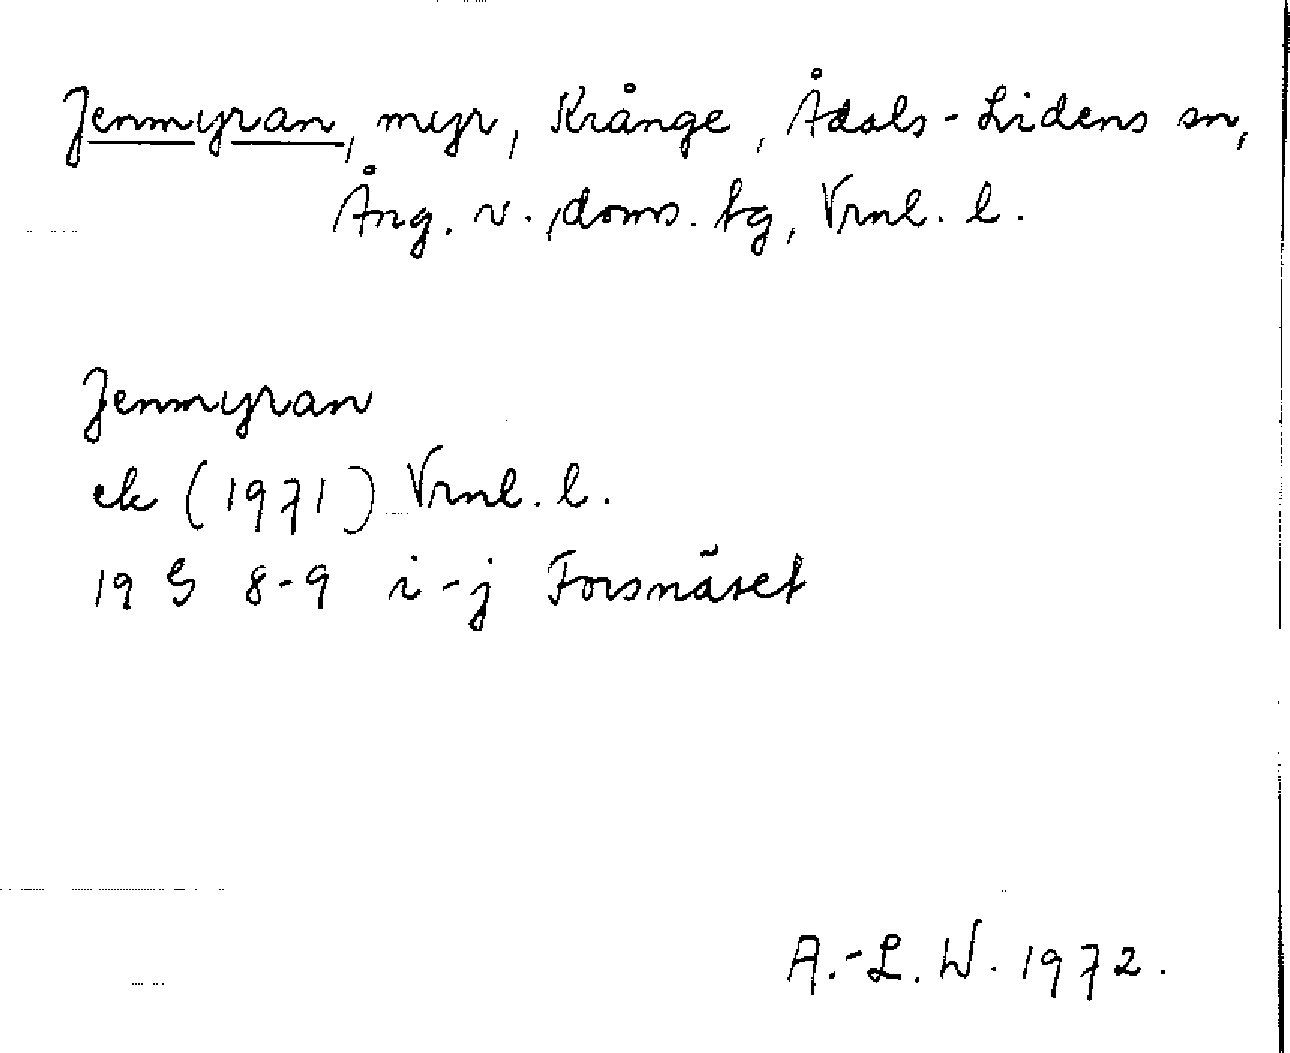 Jenmyran, myr, Krånge, Ådals-Lidens sn,
Ång. v. doms. tg, Vrnl. l.
Jenmyran
ek (1971) Vrnl. l.
19 G 8-9 i-j Forsnäset
A.-L. W. 1972.